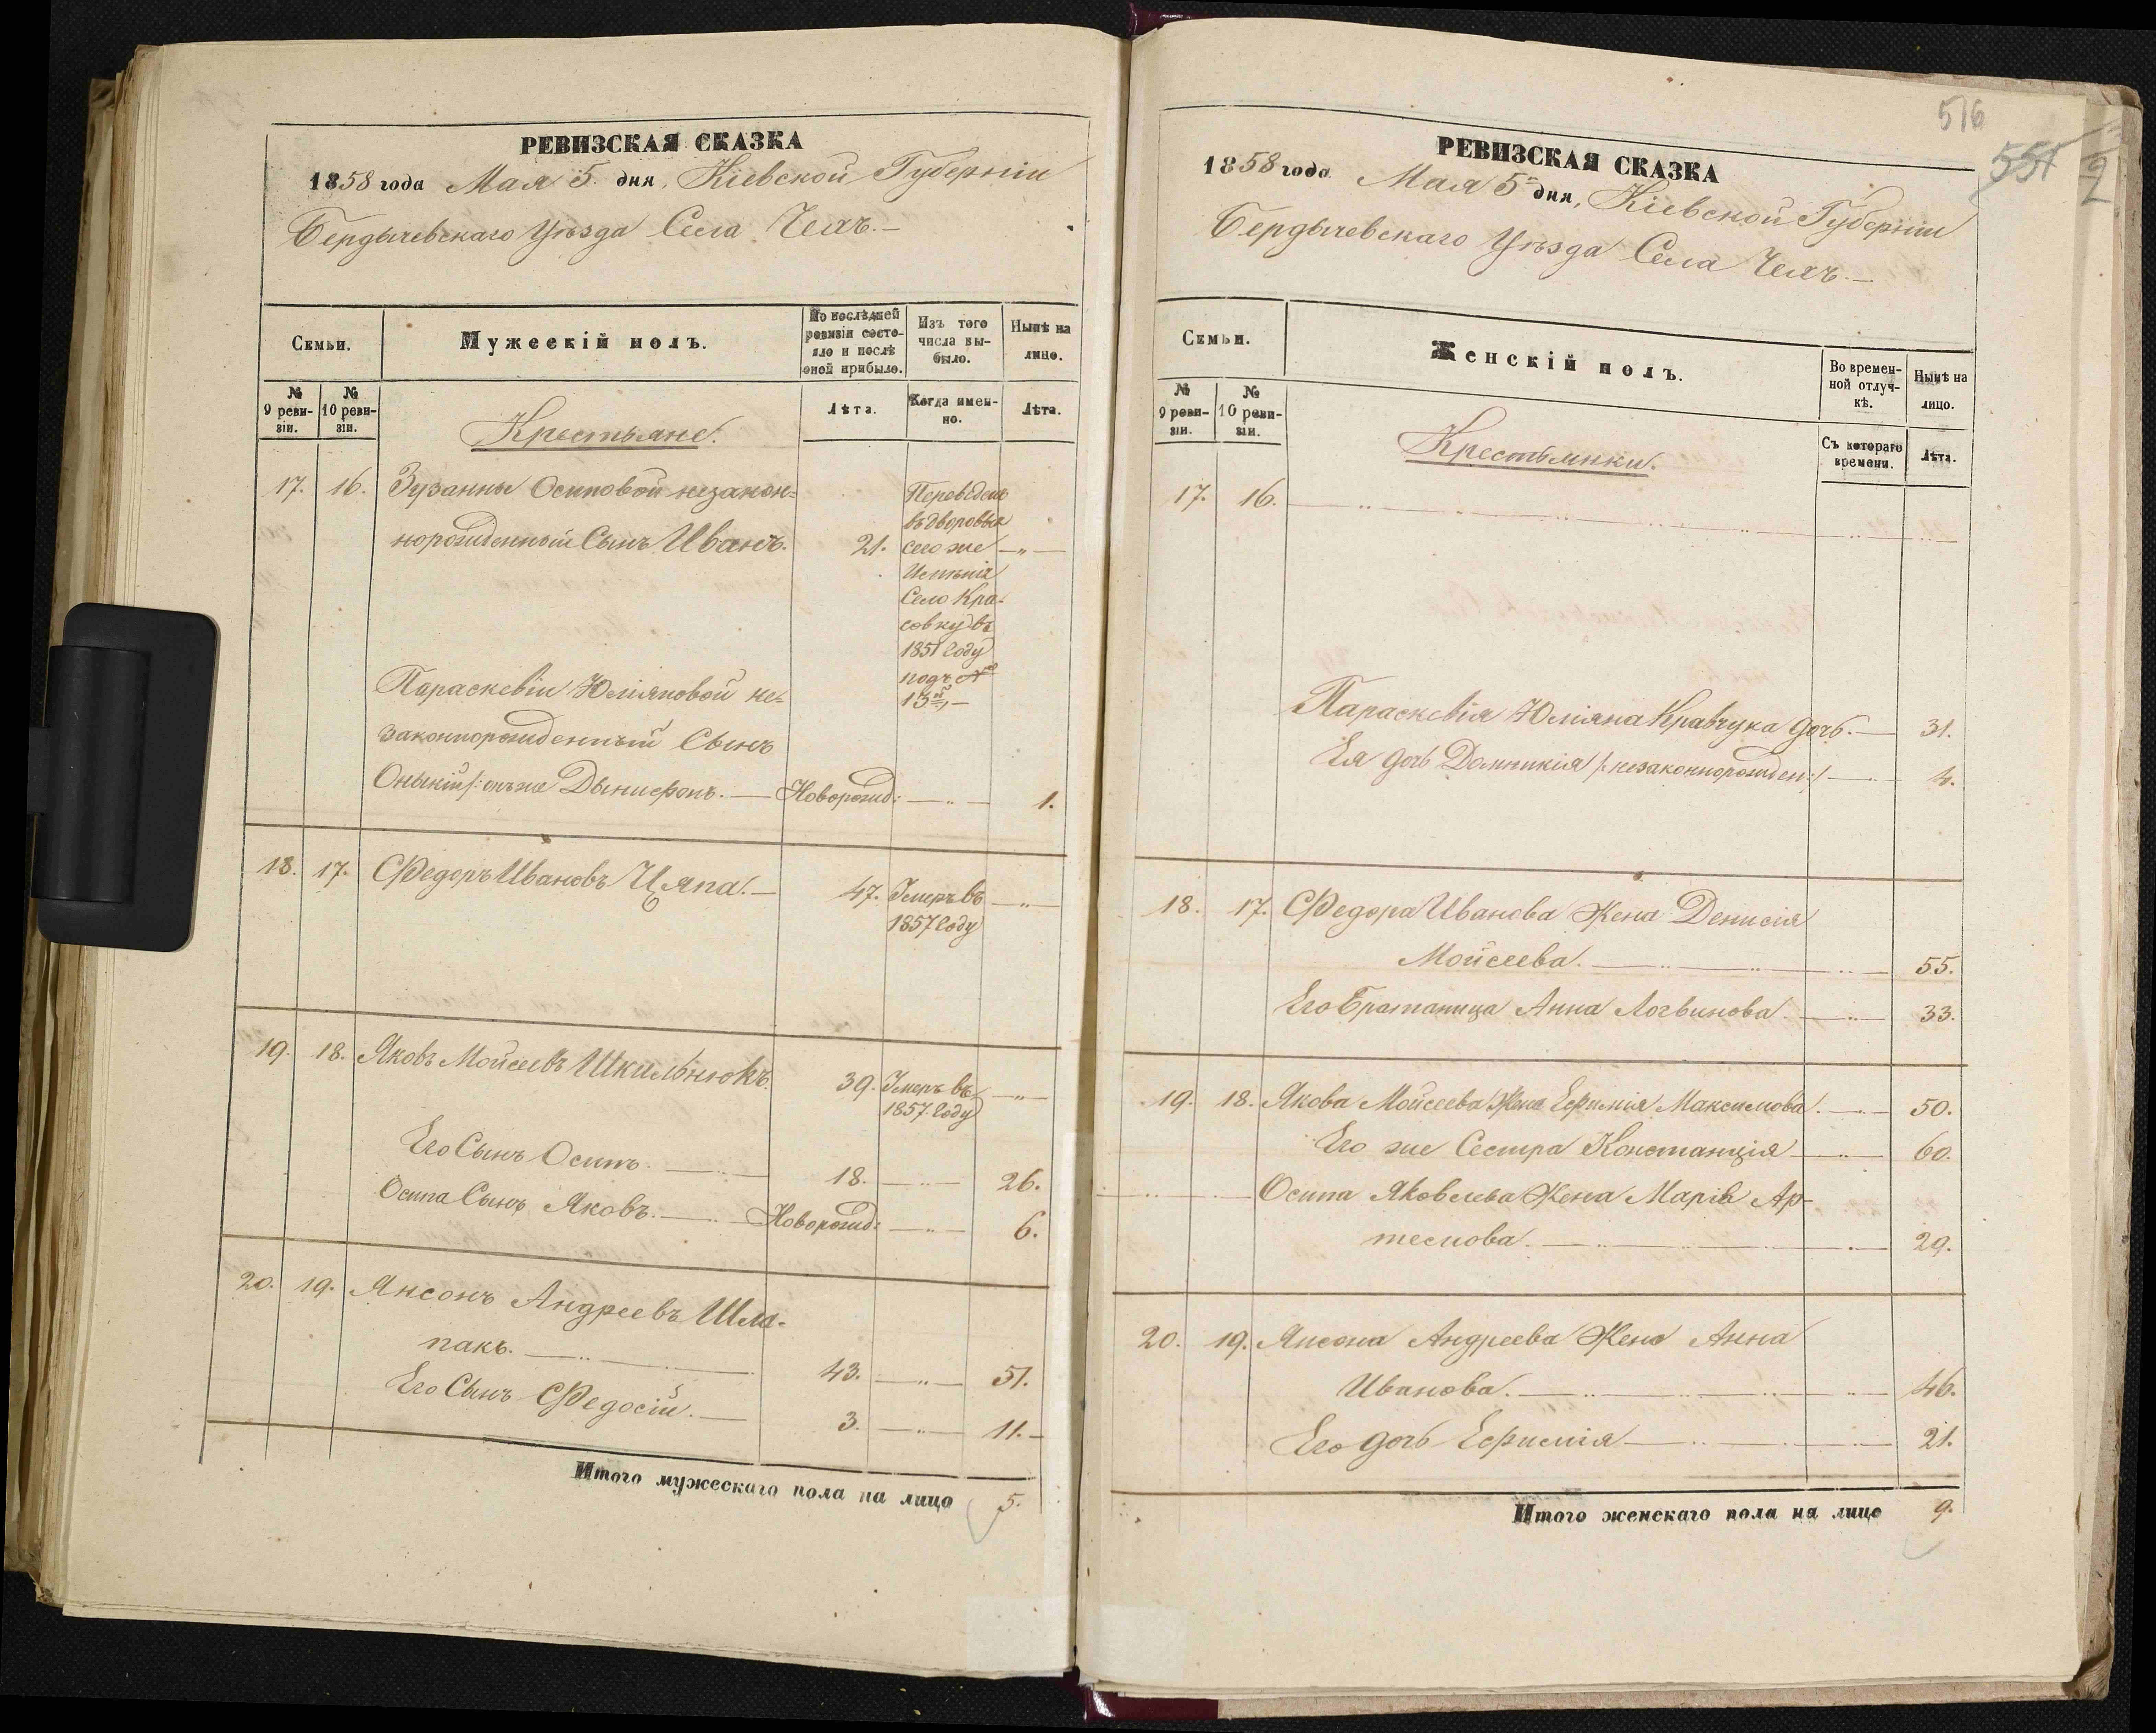 РЕВИЗСКАЯ СКАЗКА
1858 года Мая 5. дня, Кіевской Губерніи
Бердычевскаго Уѣзда Села
Семьи.
Мужескій полъ.
По послѣдней ревизіи состояло и послѣ оной прибыло.
Изъ того числа выбыло.
Нынѣ на лицо.
№ 9 ревизіи.
№ 10 ревизіи.
Крестьяне.
Лѣта.
Когда именно.
Лѣта.
17. 16. Зузанны Осиповой незакон=
норожденный Сынъ Иванъ. 21.
Переведенъ
въ дворовыя
сего же
Имѣнія
Село Кра-
совку въ
1851 году
подъ №
13
Параскевіи Юліяновой не=
законнорожденный Сынъ
Оныкій /: онъ же Новорожд: 1.
18. 17. Федоръ Ивановъ Цяпа. 47. Умеръ въ
1857 году
19. 18. Яковъ Мойсеевъ Шкильнюкъ. 39. Умеръ въ
1857. году
Его Сынъ Осипъ. 18. 26.
Осипа Сынъ Яковъ. Новорожд: 6.
20. 19. Янсонъ Андреевъ Шла-
пакъ. 43. 51.
Его Сынъ Федосій. 3. 11.
Итого мужескаго пола на лицо 5.
516
551
2
РЕВИЗСКАЯ СКАЗКА
1858 года Мая 5 дня, Кіевской Губерніи
Бердычевскаго Уѣзда Села
Семьи.
Женскій полъ.
Во временной отлучкѣ.
Нынѣ на лицо.
№ 9 ревизіи.
№ 10 ревизіи.
Крестьянки.
Съ котораго времени.
Лѣта.
17. 16.
Параскевія Юліяна Кравчука дочь. 31.
Ея дочь Домникія /: незаконнорожден:/ 4.
18. 17. Федора Иванова Жена Денисія
Мойсеева. 55.
Его Братаница Анна Логвинова. 33.
19. 18. Якова Мойсеева Жена Ефимія Максимова. 50.
Его же Сестра Констанція 60.
Осипа Яковлева Жена Марія Ар-
темова. 29.
20. 19. Янсона Андреева Жена Анна
Иванова. 46.
Его дочь Ефимія 21.
Итого женскаго пола на лицо 9.